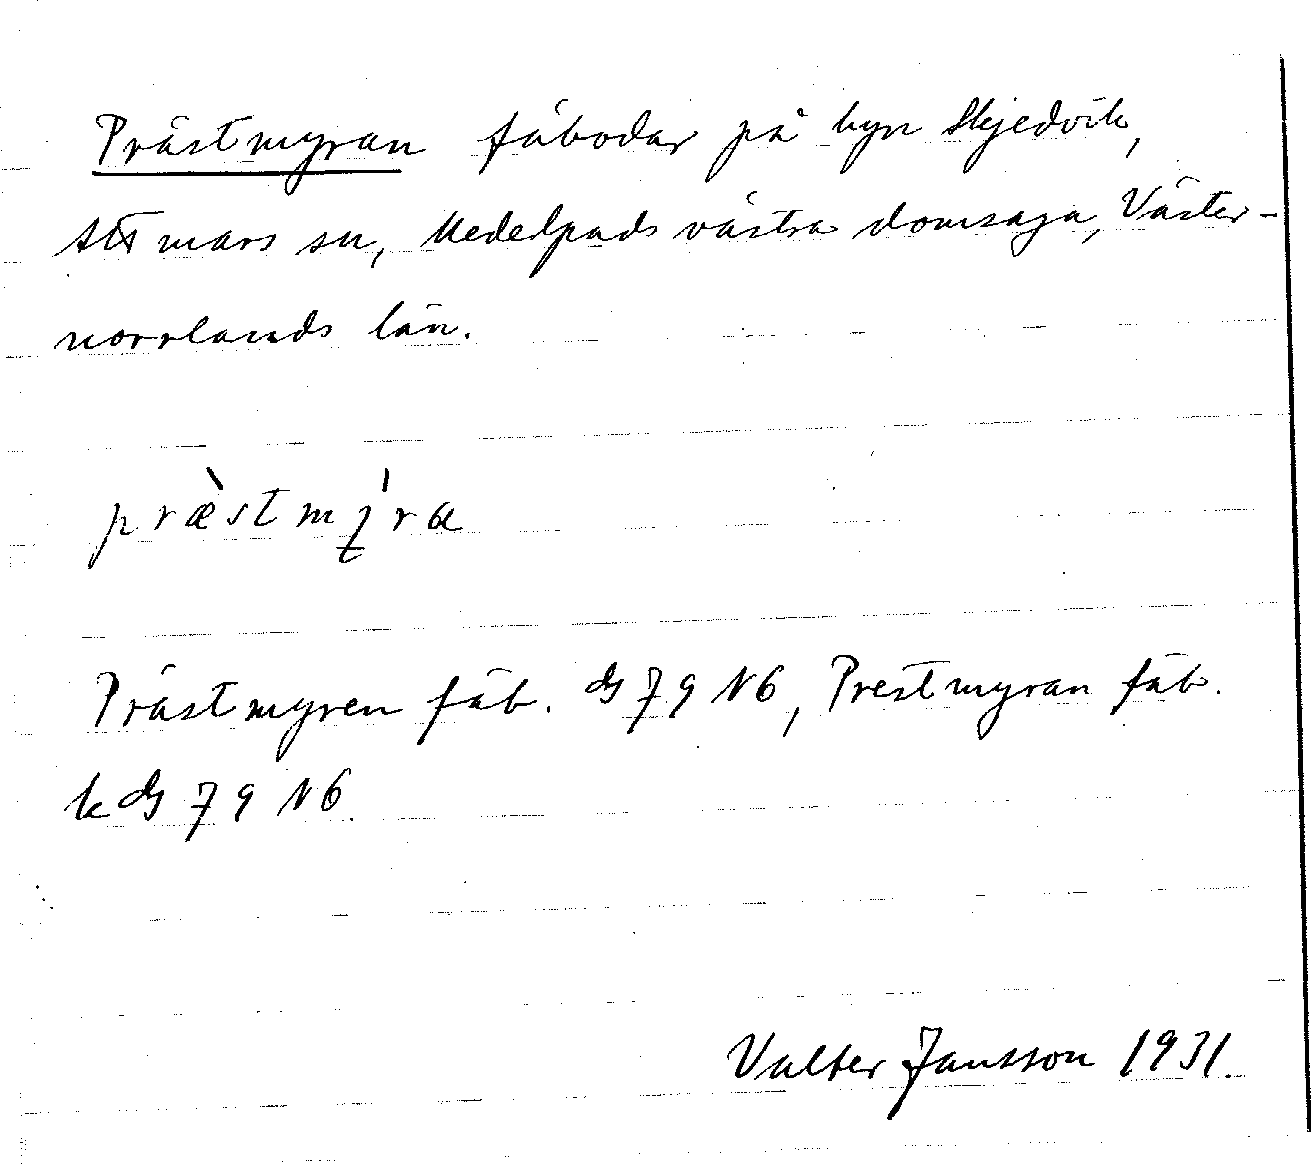 Prästmyran fäbodar på byn Skjedvik,
Attmars sn, Medelpads västra domsaga, Väster-
norrlands län.
præ̀stmy̓ra
Prästmyren fäb. G 79 N6, Prestmyran fäb.
k G 79 N6.
Valter Jansson 1931.